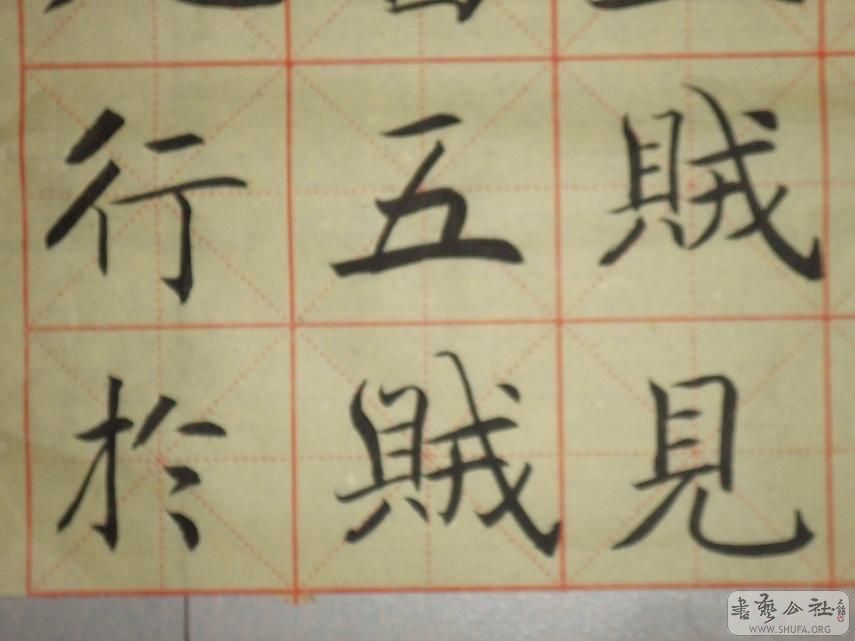 賊見
五賊
行於
書藝公社
WWW.SHUFA.ORG